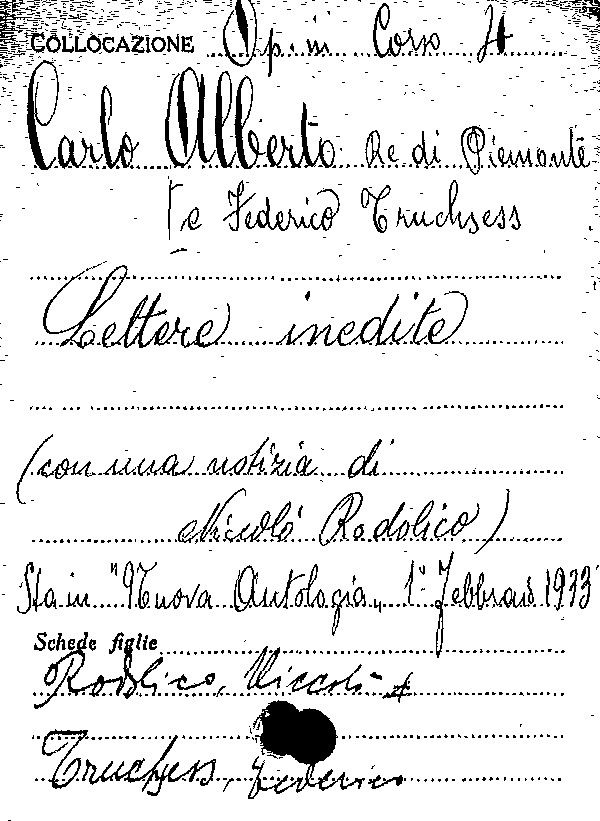 COLLOCAZIONE Op. in Corso H
Carlo Alberto Re di Piemonte
[e Federico Truchsess
Lettere inedite
(con una notizia di
Nicolò Rodolico)
Sta in "Nuova Antologia" 1° Febbraio 1933
Schede figlie
Rodolico, Niccolò
Truchsess, Federico